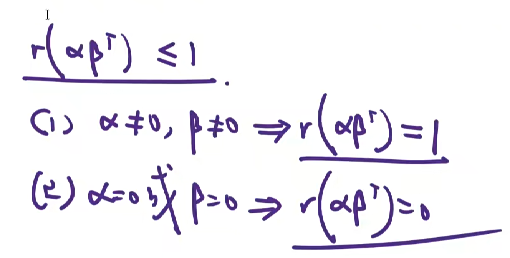 r(αβᵀ) ≤ 1.
(1) α≠0, β≠0 ⇒ r(αβᵀ)=1
(2) α=0 或 β=0 ⇒ r(αβᵀ)=0